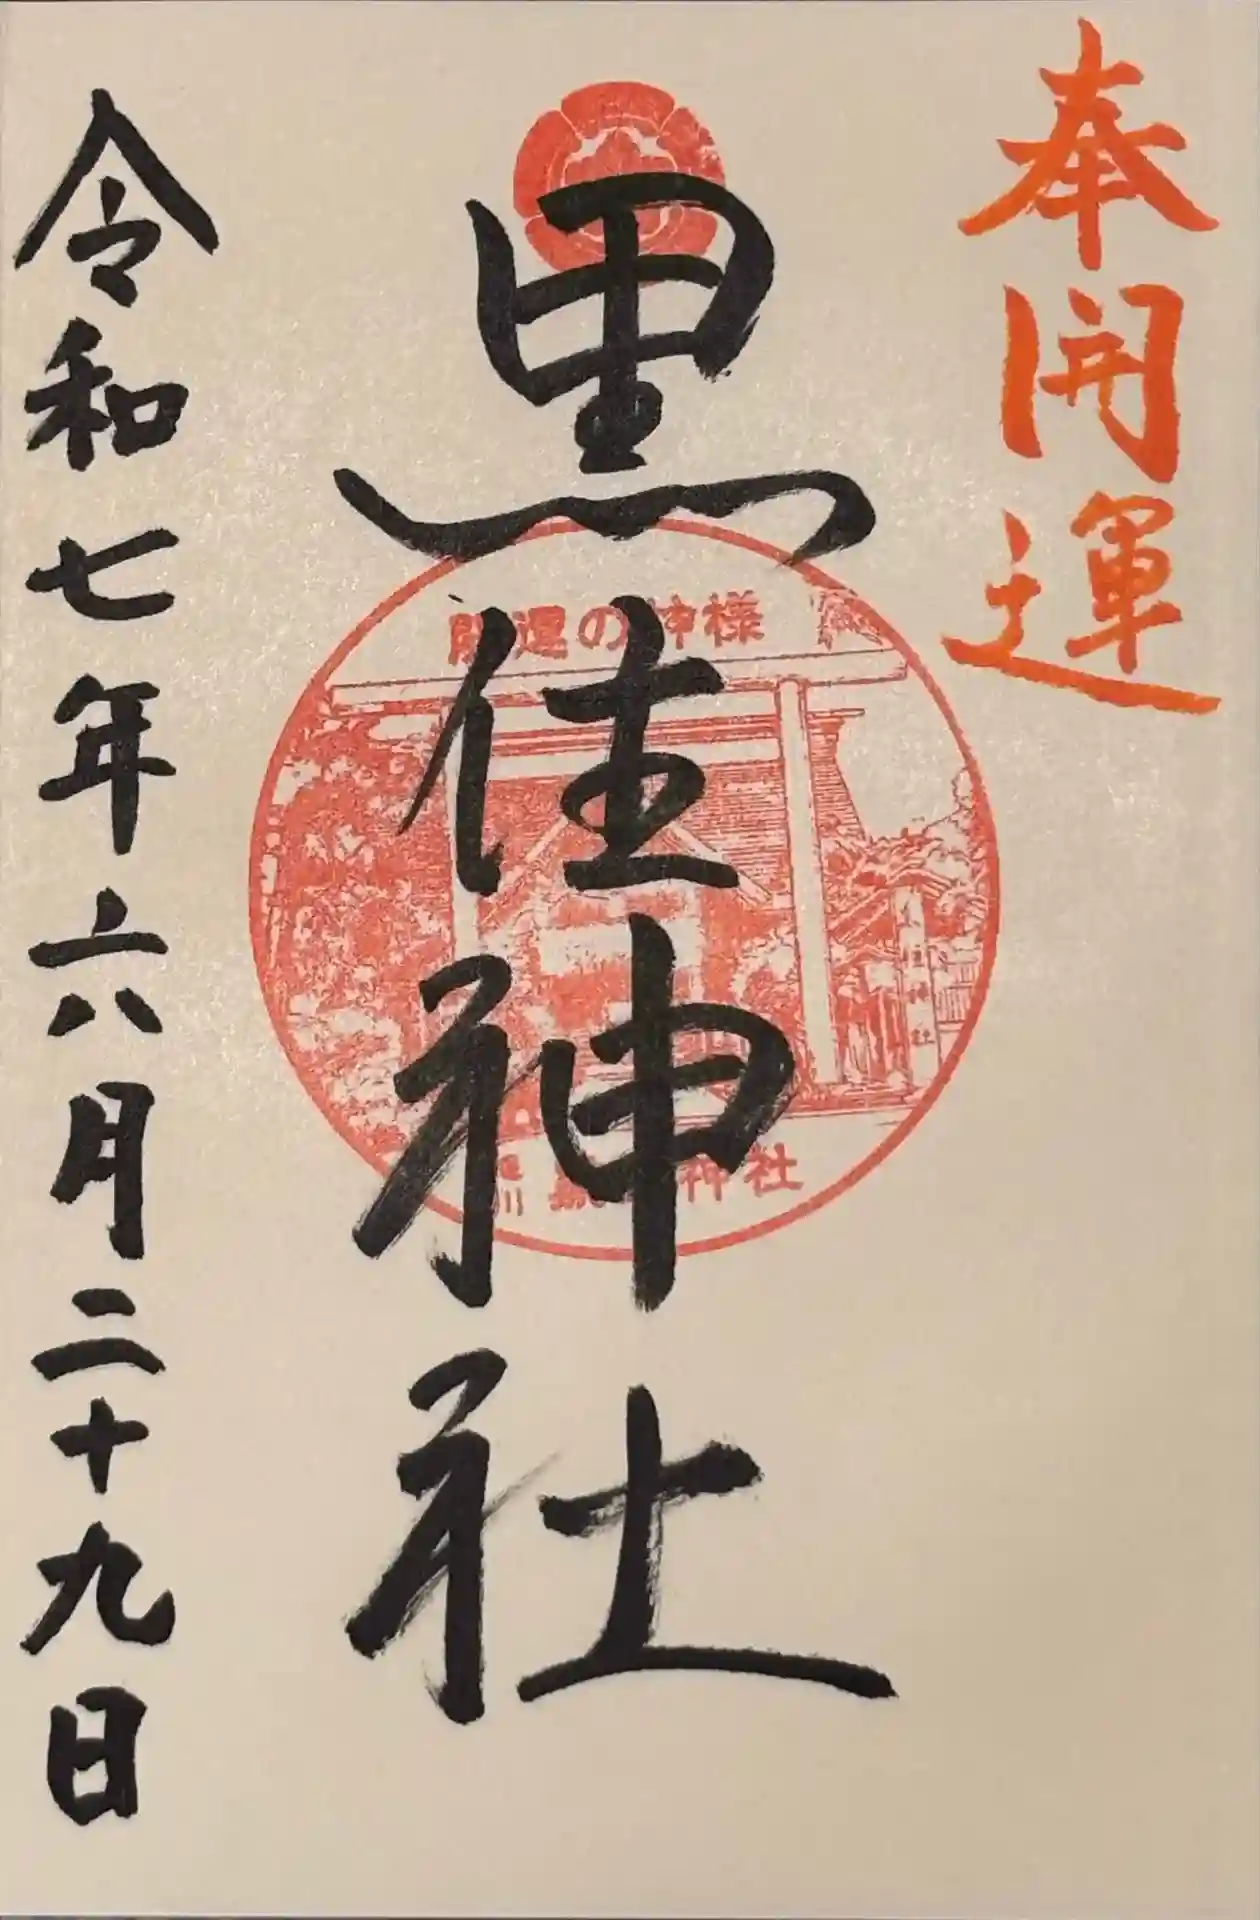 奉開運
黒住神社
開運の神様
旭川 黒住神社
令和七年六月二十九日